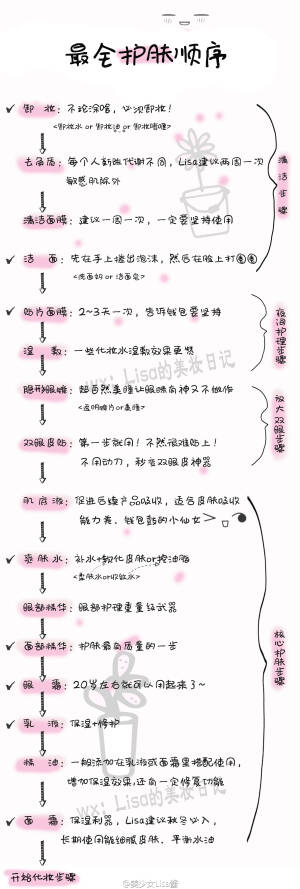 最全护肤顺序
卸 妆：不论涂啥，必须卸妆！
<卸妆水 or 卸妆油 or 卸妆啫喱>
去角质：每个人新陈代谢不同，Lisa建议两周一次
敏感肌除外
清洁面膜：建议一周一次，一定要坚持使用
洁 面：先在手上搓出泡沫，然后在脸上打圈圈
<洗面奶 or 洁面皂>
清洁步骤
贴片面膜：2~3天一次，告诉钱包要坚持
湿 敷：一些化妆水湿敷效果更赞
夜间护理步骤
隐形眼睛：超自然美瞳让眼睛有神又不做作
<透明睛片or美瞳>
双眼皮贴：第一步就用！不然很难贴上！
不用动刀，秒变双眼皮神器
放大双眼步骤
肌底液：促进后续产品吸收，适合皮肤吸收
能力差、钱包鼓的小仙女
爽肤水：补水+软化皮肤or控油脂
<柔肤水or收敛水>
眼部精华：眼部护理重量级武器
面部精华：护肤最有质量的一步
眼 霜：20岁左右就可以用起来了~
乳 液：保湿+修护
精 油：一般添加在乳液或面霜里搭配使用，
增加保湿效果，还有一定修复功能
面 霜：保湿利器，Lisa建议秋冬必入，
长期使用能细腻皮肤、平衡水油
核心护肤步骤
开始化妆步骤
wx：Lisa的美妆日记
wx：Lisa的美妆日记
@美少女Lisa酱